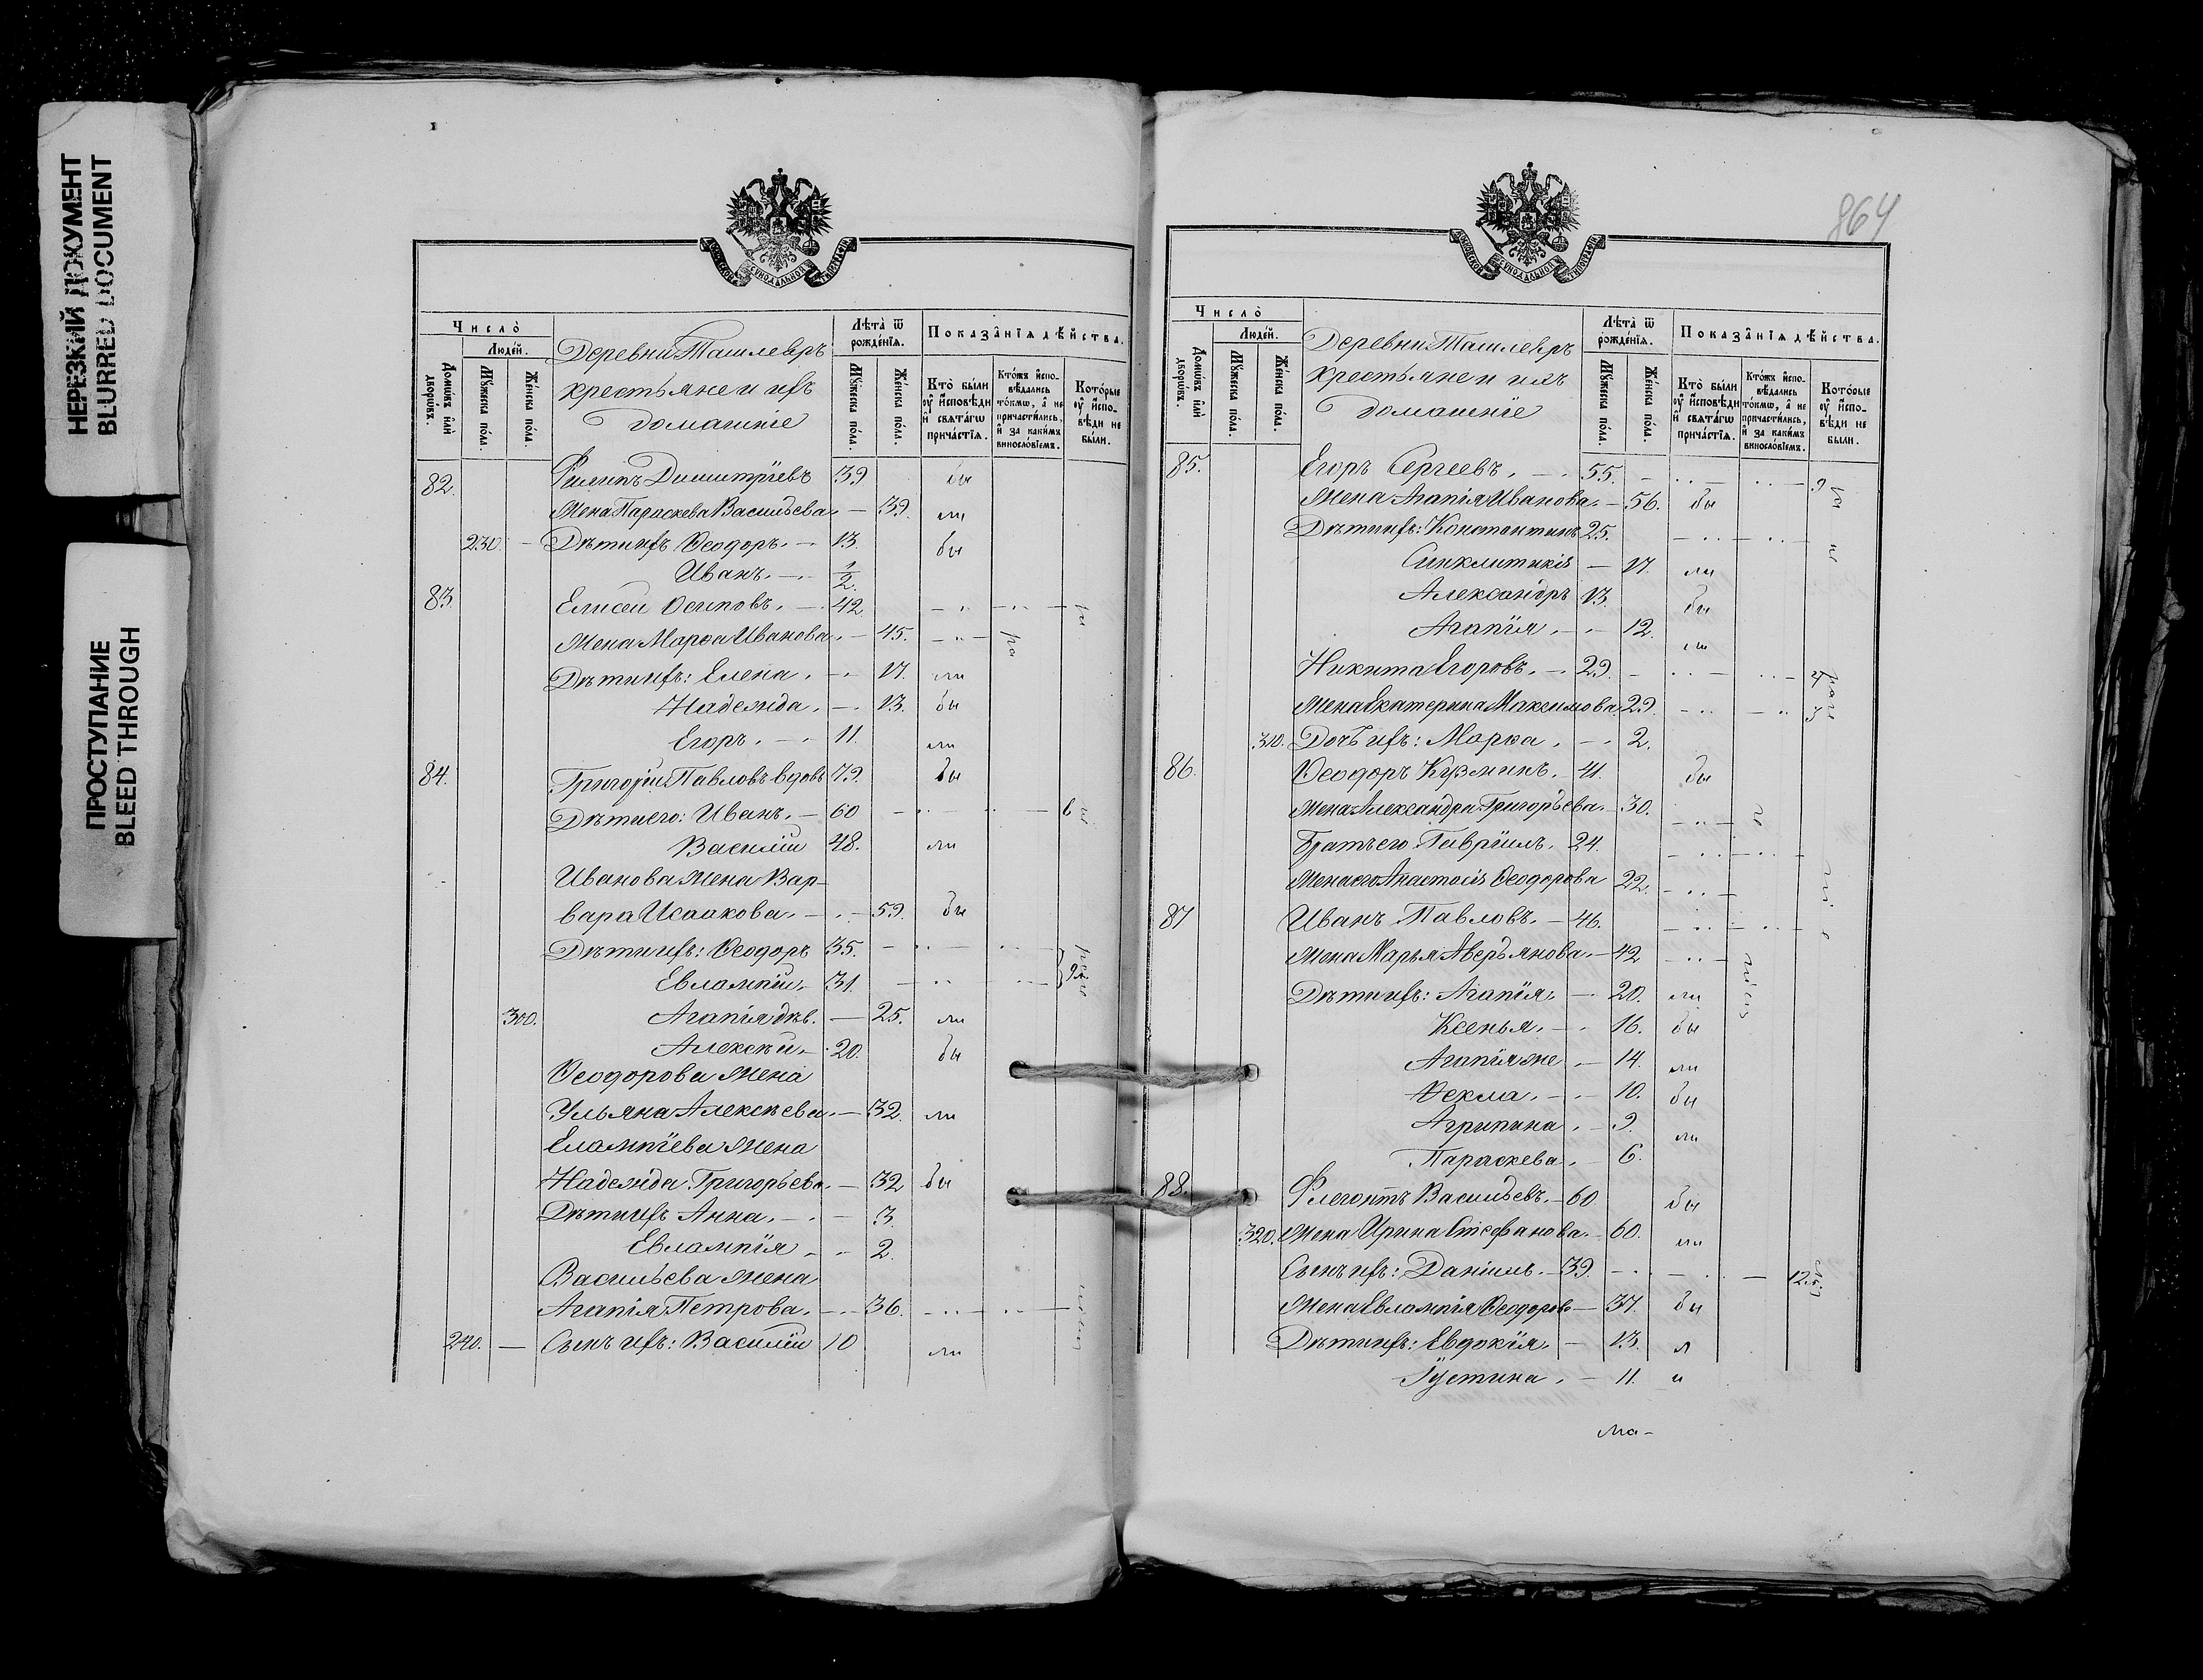 НЕРЕЗКИЙ ДОКУМЕНТ
BLURRED DOCUMENT
ПРОСТУПАНИЕ
BLEED THROUGH
МОСКОВСКОЙ СѴНОДАЛЬНОЙ ТИПОГРАФІИ
Число̀
Люде́й.
Домѡ́въ и҆лѝ дворѡ́въ.
Мꙋ́жеска по́ла.
Же́нска по́ла.
Деревни Ташлеяръ
крестьяне и ихъ
домашніе
Лѣта̀ ѿ рожде́нїѧ.
Мꙋ́жеска по́ла.
Же́нска по́ла.
Показа̂нїѧ дѣ́йства.
Кто̀ бы́ли ᲂу҆ и҆сповѣди и҆ свѧта́гѡ прича́стїѧ.
Кто́жъ и҆спо-вѣдались то́кмѡ, а҆ не причасти́лись, и҆ за каки́мъ винословїемъ.
Кото́рые ᲂу҆ и҆спо-вѣди не бы́ли.
82. Филипъ Димитріевъ 39 бы
Жена Параскева Васильева. — 39. ли
230. — Дѣти ихъ Ѳеодоръ. — 13. бы
Иванъ. — 1/2.
83 Елисей Осиповъ. — 42.
Жена Марѳа Иванова. — 45.
Дѣти ихъ: Елена. — 17. ли
Надежда. — 13. бы
Егоръ. — 11. ли
84. Григорій Павловъ вдовъ 79. бы
Дѣти его: Иванъ. — 60
Василій 48. ли
Иванова жена Вар-
вара Исаакова. — 59. бы
Дѣти ихъ: Ѳеодоръ 35.
Евлампій. 31.
300. Агапія дѣв. — 25. ли
Алексѣй. 20. бы
Ѳеодорова жена
Ульяна Алексѣева. — 32. ли
Елампіева жена
Надежда Григорьева. — 32 бы
Дѣти ихъ Анна. — 3.
Евлампія. — 2.
Васильева жена
Агапія Петрова. — 36.
240. — Сынъ ихъ: Василій 10 ли
864
МОСКОВСКОЙ СѴНОДАЛЬНОЙ ТИПОГРАФІИ
Число̀
Люде́й.
Домѡ́въ и҆лѝ дворѡ́въ.
Мꙋ́жеска по́ла.
Же́нска по́ла.
Деревни Ташлеяръ
крестьяне и ихъ
домашніе
Лѣта̀ ѿ рожде́нїѧ.
Мꙋ́жеска по́ла.
Же́нска по́ла.
Показа̂нїѧ дѣ́йства.
Кто̀ бы́ли ᲂу҆ и҆сповѣди и҆ свѧта́гѡ прича́стїѧ.
Кто́жъ и҆спо-вѣдались то́кмѡ, а҆ не причасти́лись, и҆ за каки́мъ винословїемъ.
Кото́рые ᲂу҆ и҆спо-вѣди не бы́ли.
85. Егоръ Сергеевъ. — 55.
Жена Агапія Иванова. — 56. бы
Дѣти ихъ: Константинъ 25.
Синклитикія — 17. ли
Александръ 13. бы
Агапія. — 12. ли
Никита Егоровъ. — 29.
Жена Екатерина Максимова 29.
310. Дочь ихъ: Марѳа. — 2.
86. Ѳеодоръ Кузминъ. 41. бы
Жена Александра Григорьева. — 30.
Братъ его Гавріилъ. 24.
Жена его Анастасія Ѳеодорова 22.
87 Иванъ Павловъ. — 46.
Жена Марья Аверьянова. — 42
Дѣти ихъ: Агапія. — 20. ли
Ксенья. — 16. бы
Агапія же — 14. ли
Ѳекла. — 10. бы
Агрипина. — 9. ли
Параскева. — 6.
88. Флегонтъ Васильевъ. — 60 бы
320. Жена Ирина Стефанова. 60. ли
Сынъ ихъ: Даніилъ. — 39. — 12
Жена Евлампія Ѳеодоров. — 37. бы
Дѣти ихъ: Евдокія. — 13. л
Іустина. — 11. и
Ма-